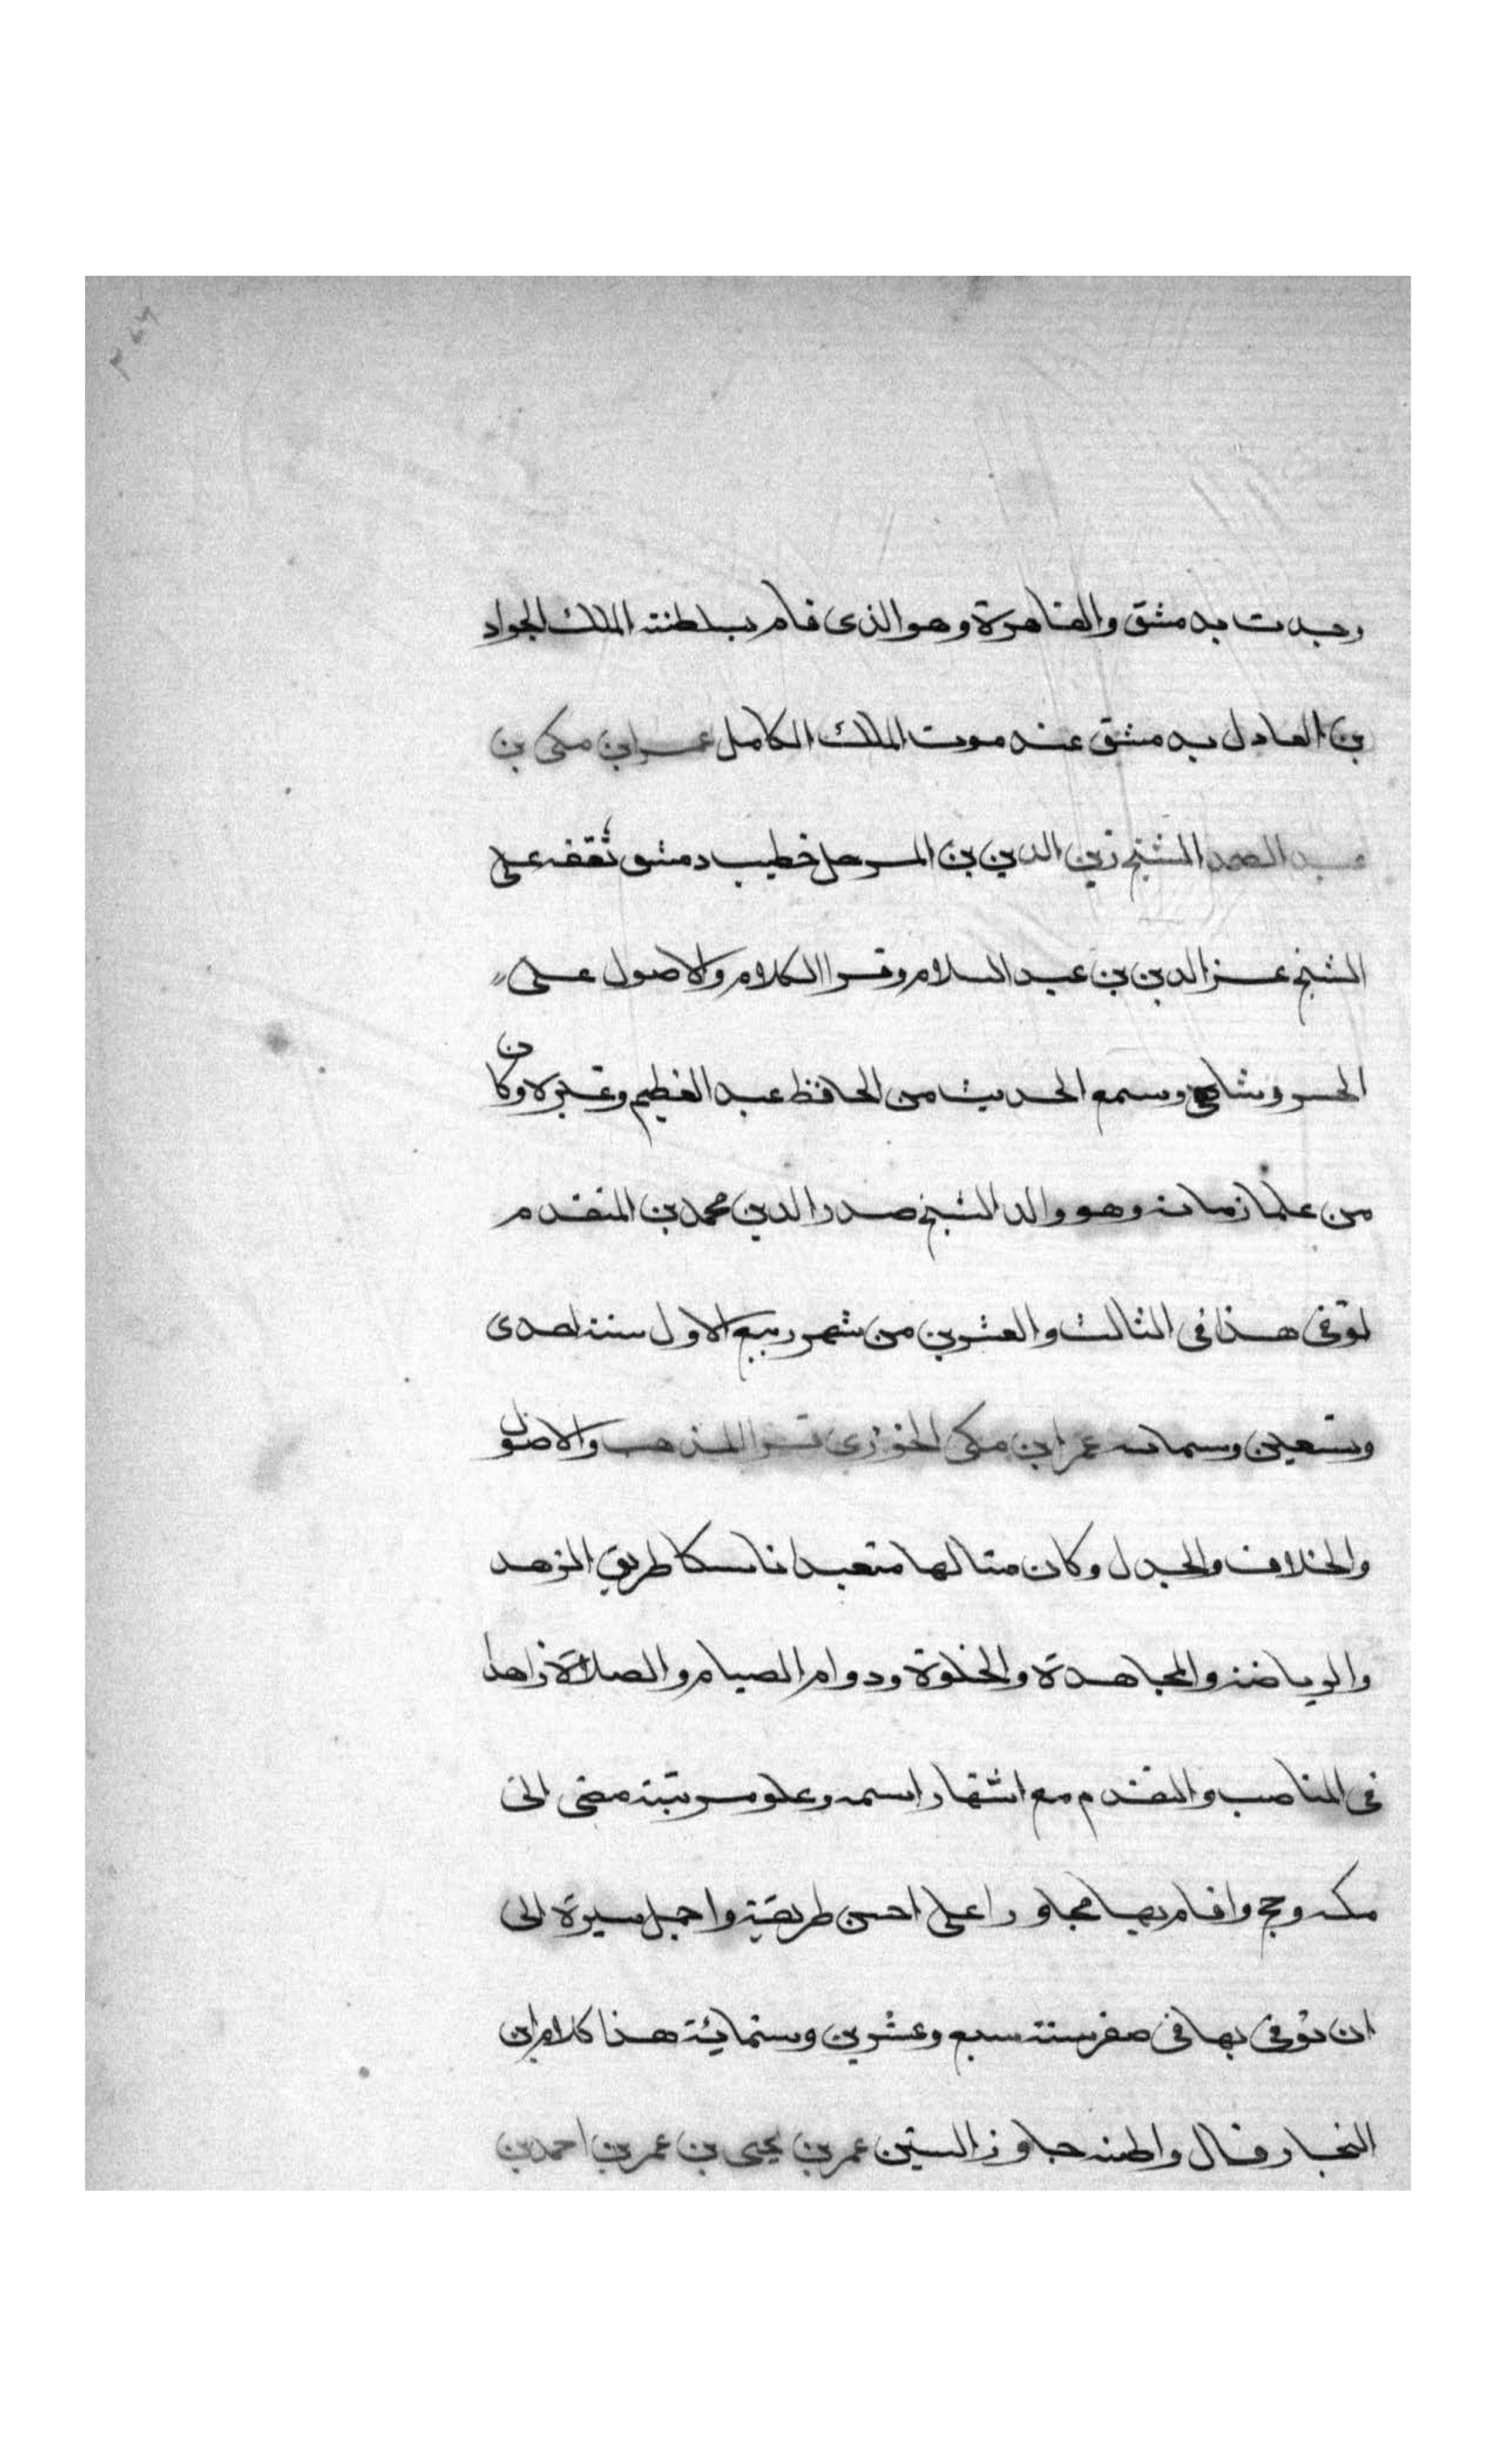 وحدث بدمشق والقاهرة وهو الذى قام بسلطنة الملك الجواد
بن العادل بدمشق عند موت الملك الكامل عمر ابن مكى بن
عبد الصمد الشيخ زين الدين بن المرحل خطيب دمشق تفقه على
الشيخ عز الدين بن عبد السلام وقرا الكلام والاصول على
الخسروشاهى وسمع الحديث من الحافظ عبد العظيم وغيره وكان
من علما زمانه وهو والد الشيخ صدر الدين محمد بن المتقدم
توفى هذا فى الثالث والعشرين من شهر ربيع الاول سنة احدى
وتسعين وستمائة عمر ابن مكى الخوزى قرا المذهب والاصول
والخلاف والجدل وكان متالها متعبدا ناسكا طريق الزهد
والرياضة والمجاهدة والخلوة ودوام الصيام والصلاة زاهدا
فى المناصب والتقدم مع اشتهار اسمه وعلو مرتبته مضى الى
مكه وحج واقام بها مجاورا على احسن طريقة واجمل سيرة الى
ان توفى بها فى صفر سنة سبع وعشرين وستمائة هذا كلام ابن
النجار قال واظنه جاوز الستين عمر بن يحيى بن عمر بن احمد بن